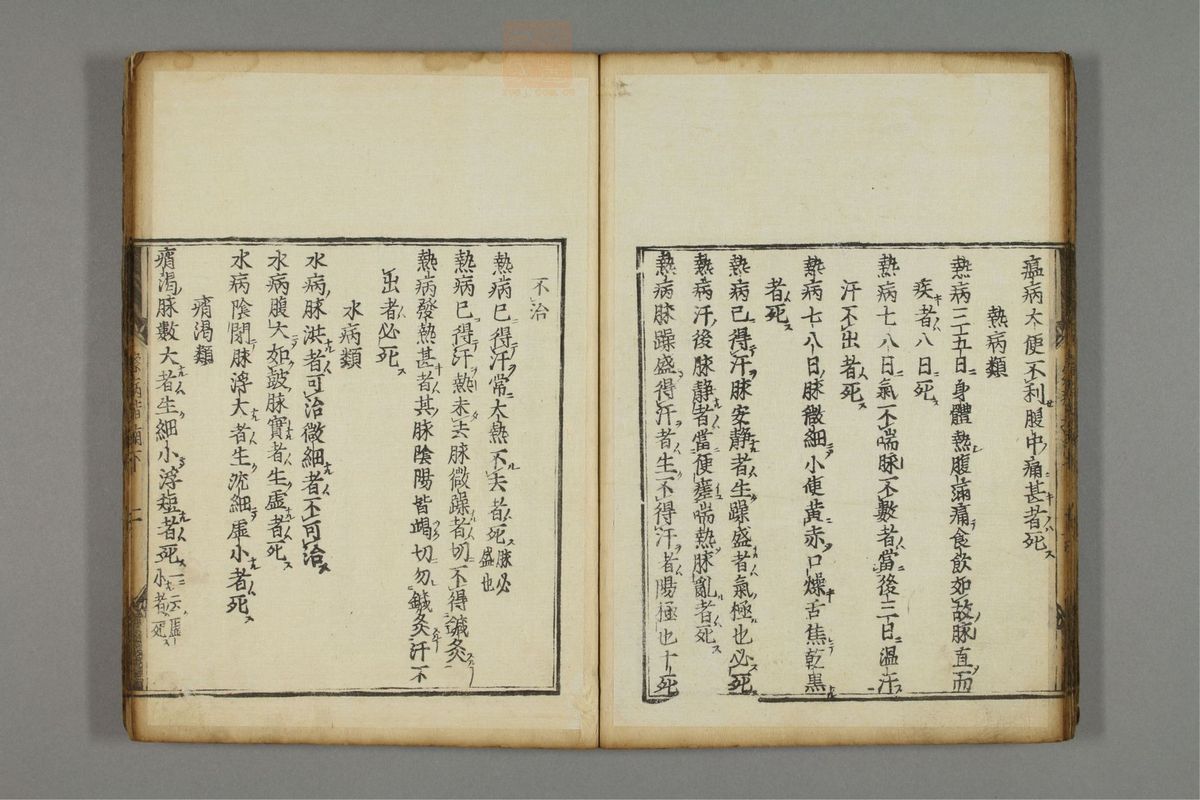 瘟病大便不利腹中痛甚者死
熱病類
熱病三五日身體熱腹滿痛食飲如故脉直而
疾者八日死
熱病七八日氣不喘脉不數者當後三日温汗
汗不出者死
熱病七八日脉微細小便黄赤口燥舌焦乾黒
者死
熱病已得汗脉安静者生躁盛者氣極也必死
熱病汗後脉静者當便喘熱脉亂者死
熱病脉躁盛得汗者生不得汗者陽極也十死
不治
熱病已得汗常大熱不去者死脉必盛也
熱病已得汗熱未去脉微躁者切不得鍼灸
熱病發熱甚者其脉陰陽皆竭切勿鍼灸汗不
出者必死
水病類
水病脉洪者可治微細者不可治
水病腹大如鼓脉實者生虚者死
水病陰閉脉浮大者生沈細虚小者死
痟渇類
痟渇脉數大者生細小浮短者死一ニ云虚小者死